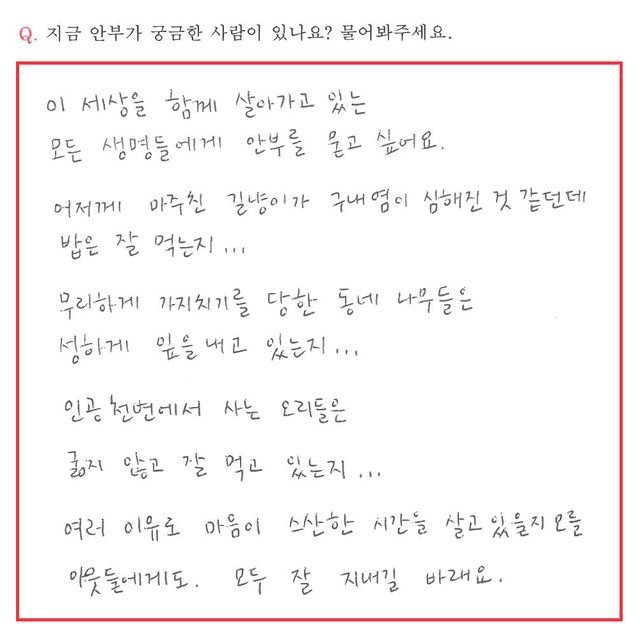 Q. 지금 안부가 궁금한 사람이 있나요? 물어봐주세요.
이 세상을 함께 살아가고 있는
모든 생명들에게 안부를 묻고 싶어요.
어저께 마주친 길냥이가 구내염이 심해진 것 같던데
밥은 잘 먹는지...
무리하게 가지치기를 당한 동네 나무들은
성하게 잎을 내고 있는지...
인공천변에서 사는 오리들은
굶지 않고 잘 먹고 있는지...
여러 이유로 마음이 스산한 시간을 살고 있을지 모를
이웃들에게도. 모두 잘 지내길 바래요.